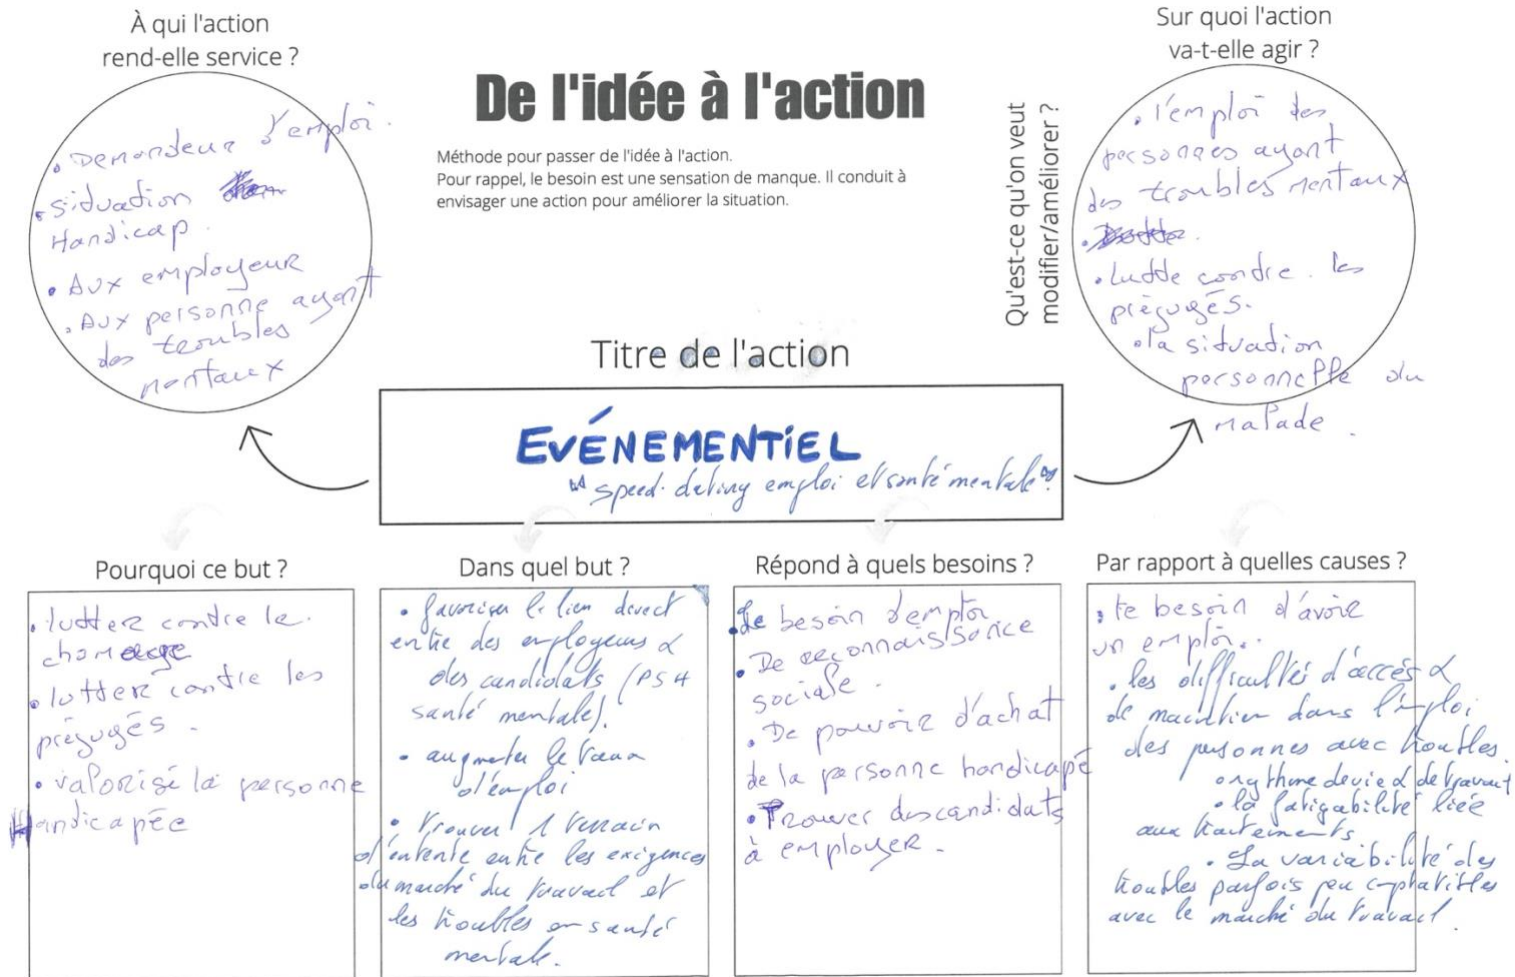 À qui l'action
rend-elle service ?
• Demandeur d'emploi.
• situation
Handicap.
• Aux employeur
• Aux personne ayant
des troubles
mentaux
De l'idée à l'action
Méthode pour passer de l'idée à l'action.
Pour rappel, le besoin est une sensation de manque. Il conduit à
envisager une action pour améliorer la situation.
Sur quoi l'action
va-t-elle agir ?
Qu'est-ce qu'on veut
modifier/améliorer ?
• l'emploi des
personnes ayant
des troubles mentaux
• lutte contre les
préjugés.
• la situation
personnelle du
malade.
Titre de l'action
EVÉNEMENTIEL
"speed-dating emploi et santé mentale"
Pourquoi ce but ?
• lutter contre le
chomage
• lutter contre les
préjugés.
• valorisé la personne
Handicapée
Dans quel but ?
• favoriser le lien direct
entre des employeurs &
des candidats (PSH
santé mentale).
• augmenter le taux
d'emploi
• trouver 1 terrain
d'entente entre les exigences
du marché du travail et
les troubles en santé
mentale.
Répond à quels besoins ?
• Le besoin d'emploi
• De reconnaissance
sociale.
• De pouvoir d'achat
de la personne handicapé
• Trouver des candidats
à employer.
Par rapport à quelles causes ?
• Le besoin d'avoir
un emploi.
• les difficultés d'accès &
de maintien dans l'emploi
des personnes avec troubles.
• rythme de vie & de travail
• la fatigabilité liée
aux traitements
• La variabilité des
troubles parfois peu compatibles
avec le marché du travail.